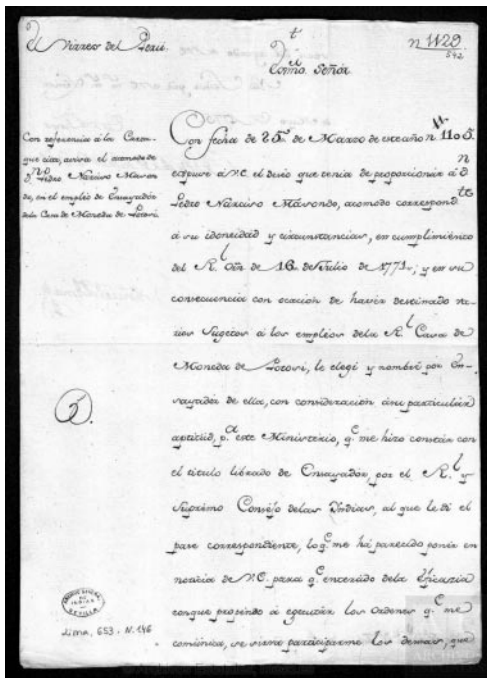 El Virrey del Perú.
n 1129
542
Exmo. Señor.
Con referencia á la Carta
que cita, avisa el acomodo de
Dn. Pedro Narciso Maron
do, en el empleo de Ensayador
dela Casa de Moneda de Potosi.
Con fecha de 25 de Marzo de este año n 1105
expuse á V.E. el deseo que tenia de proporcionar á Dn
Pedro Narciso Marondo, acomodo correspondte
á su idoneidad y circunstancias, en cumplimiento
del Rl. Orn de 16 de Julio de 1771; y en su
consecuencia con ocasion de haver destinado va
rios Sugetos á los empleos dela Rl Casa de
Moneda de Potosi, le elegi y nombré por En
sayador de ella, con consideracion ásu particular
aptitud, pa este Ministerio, qe me hizo constár con
el titulo librado de Ensayador, por el Rl y
Suprêmo Consejo delas Indias, al que le di el
pase correspondiente, lo qe me há parecido ponér en
noticia de V.E. para qe enterado dela eficacia
conque propendo á egecutár las ordenes qe me
comunica, se sirva participarme las demas, que
5
ARCHIVO GENERAL
DE
INDIAS
SEVILLA
Lima, 653. N. 146